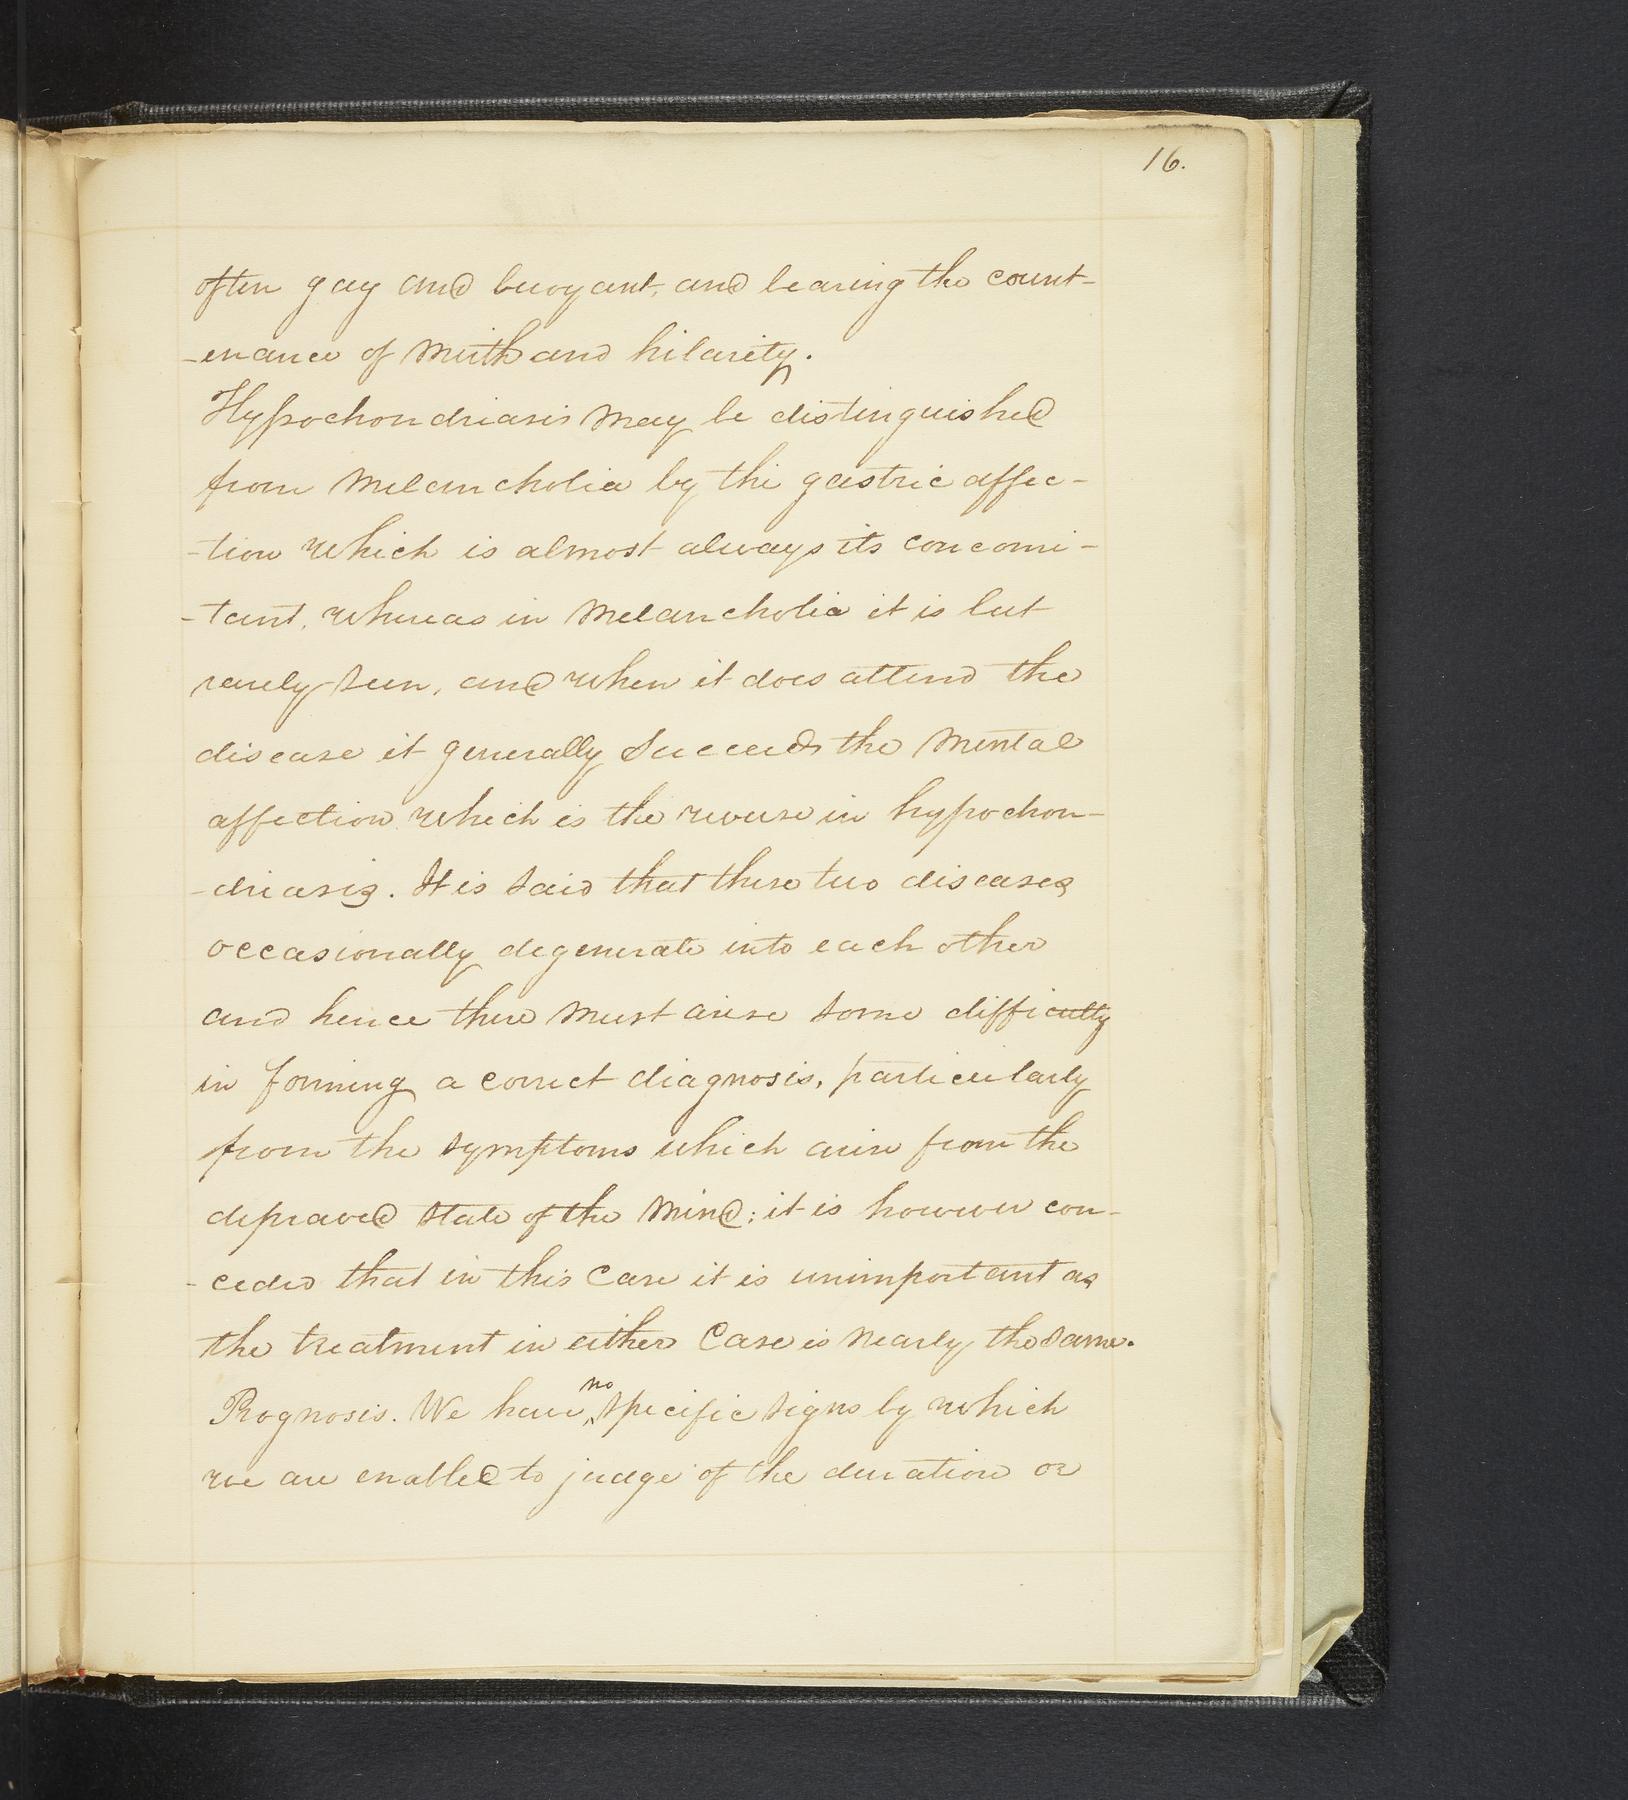 16.
often gay and buoyant, and bearing the count-
-enance of Mirth and hilarity.
Hypochondriasis May be distinguished
from Melancholia by the gastric affec-
-tion which is almost always its concomi-
-tant, whereas in Melancholia it is but
rarely seen, and when it does attend the
disease it generally Succeeds the Mental
affection which is the reverse in hypochon-
-driasis. It is said that these two diseases
occasionally degenerate into each other
and hence there Must arise some difficulty
in forming a correct diagnosis, particularly
from the symptoms which arise from the
depraved state of the Mind; it is however con-
-ceded that in this Case it is unimportant as
the treatment in either Case is Nearly the same.
Prognosis. We have no specific signs by which
we are enabled to judge of the duration or